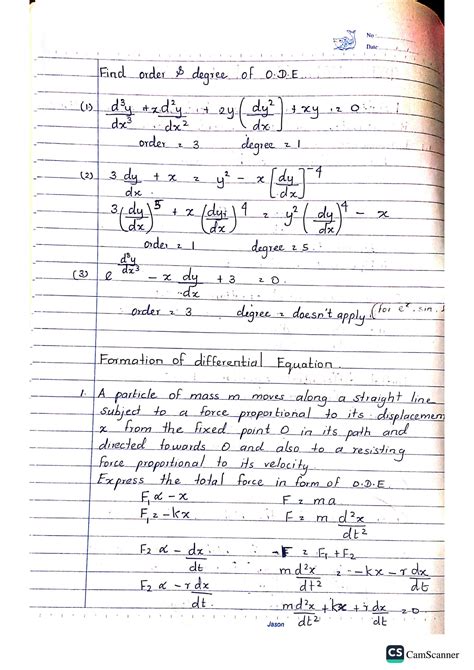 No :
Date : / /
Find order & degree of O.D.E.
(1) d³y/dx³ + x d²y/dx² + 2y (dy²/dx) + xy = 0
order = 3 degree = 1
(2) 3 dy/dx + x = y² - x [dy/dx]⁻⁴
3 (dy/dx)⁵ + x (dy/dx)⁴ = y² (dy/dx)⁴ - x
order = 1 degree = 5
(3) e^(d³y/dx³) - x dy/dx + 3 = 0
order = 3 degree = doesn't apply (for eˣ, sin,
Formation of differential Equation
1. A particle of mass m moves along a straight line
subject to a force proportional to its displacemen
x from the fixed point O in its path and
directed towards O and also to a resisting
force proportional to its velocity.
Express the total force in form of O.D.E.
F₁ α - x F = ma
F₁ = - kx F = m d²x/dt²
F₂ α - dx/dt F = F₁ + F₂
F₂ α - r dx/dt m d²x/dt² = - kx - r dx/dt
m d²x/dt² + kx + r dx/dt = 0
Jason
CS CamScanner